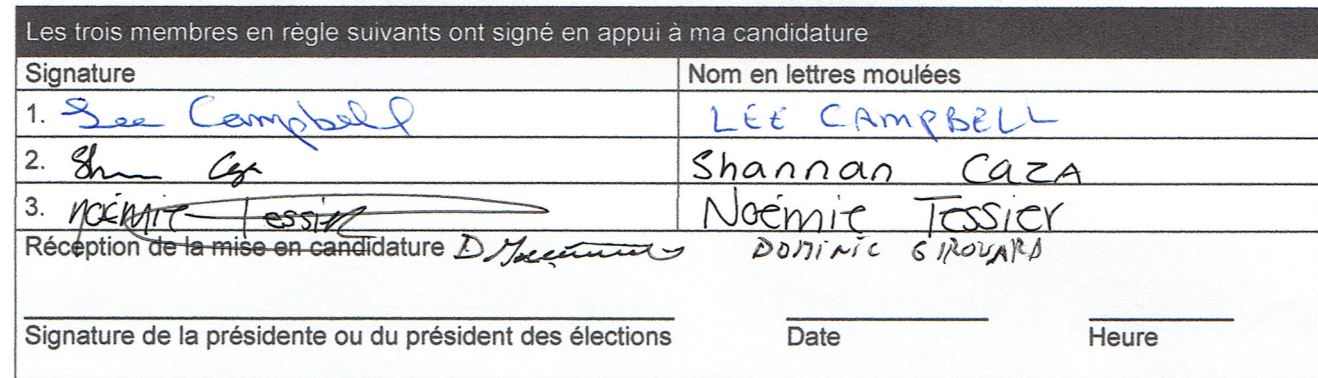 Les trois membres en règle suivants ont signé en appui à ma candidature
Signature Nom en lettres moulées
1. Lee Campbell LEE CAMPBELL
2. Shannan CAZA
3. Noémie Tessier Noémie Tessier
Réception de la mise en candidature DOMINIC GIROUARD
Signature de la présidente ou du président des élections Date Heure